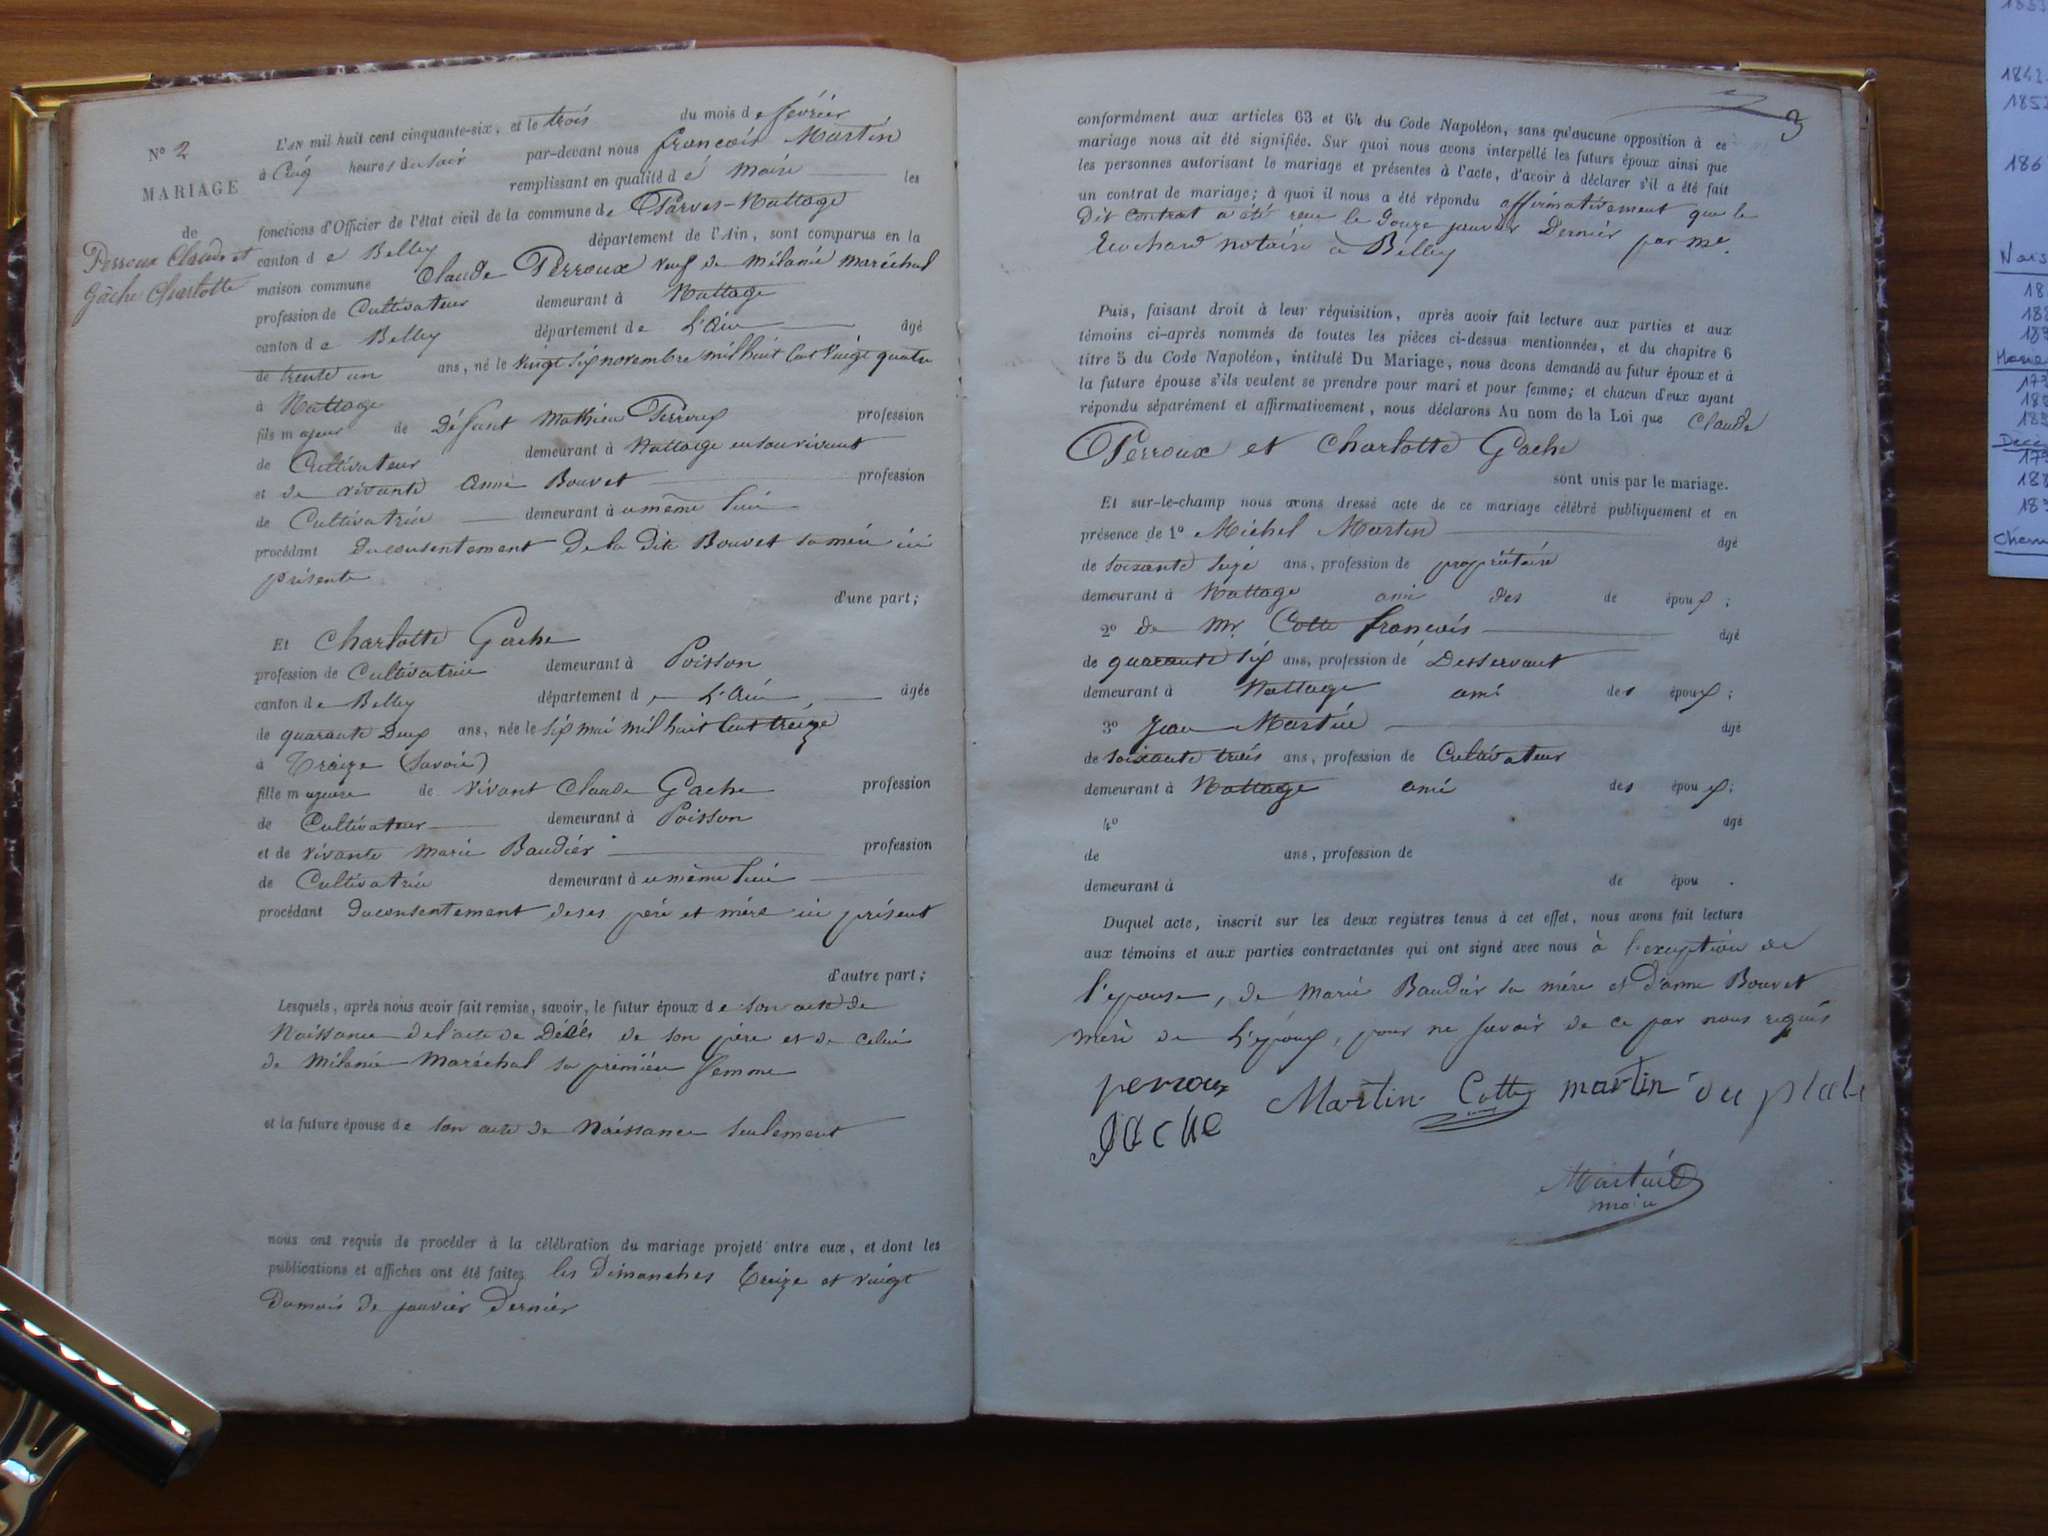 N° 2
MARIAGE
de
Perroux Claude et
Gâche Charlotte
L'AN mil huit cent cinquante-six, et le trois du mois de février
à Cinq heures du soir par-devant nous françois Martin
remplissant en qualité de Maire les
fonctions d'Officier de l'état civil de la commune de Parves-Nattage
canton de Belley département de l'Ain, sont comparus en la
maison commune Claude Perroux veuf de Mélanie Maréchal
profession de Cultivateur demeurant à Nattage
canton de Belley département de L'Ain âgé
de trente un ans, né le vingt six novembre mil huit cent vingt quatre
à Nattage
fils majeur de Défunt Mathieu Perroux profession
de Cultivateur demeurant à Nattage en son vivant
et de vivante Anne Bouvet profession
de Cultivatrice demeurant à u même lieu
procédant du consentement De la dite Bouvet sa mère ici
présente
d'une part;
Et Charlotte Gache
profession de Cultivatrice demeurant à Poisson
canton de Belley département de L'Ain âgée
de quarante Deux ans, née le six mai mil huit cent treize
à Traize (Savoie)
fille majeure de vivant Claude Gache profession
de Cultivateur demeurant à Poisson
et de vivante Marie Baudier profession
de Cultivatrice demeurant à u même lieu
procédant du consentement de ses père et mère ici présent
d'autre part;
Lesquels, après nous avoir fait remise, savoir, le futur époux de son acte de
Naissance de l'acte de Décès de son père et de celui
de Mélanie Maréchal sa première femme
et la future épouse de son acte de Naissance seulement
nous ont requis de procéder à la célébration du mariage projeté entre eux, et dont les
publications et affiches ont été faites les Dimanches treize et vingt
du mois de janvier Dernier
3
conformément aux articles 63 et 64 du Code Napoléon, sans qu'aucune opposition à ce
mariage nous ait été signifiée. Sur quoi nous avons interpellé les futurs époux ainsi que
les personnes autorisant le mariage et présentes à l'acte, d'avoir à déclarer s'il a été fait
un contrat de mariage; à quoi il nous a été répondu affirmativement que le
Dit contrat a été reçu le Douze janvier Dernier par me.
notaire à Belley
Puis, faisant droit à leur réquisition, après avoir fait lecture aux parties et aux
témoins ci-après nommés de toutes les pièces ci-dessus mentionnées, et du chapitre 6
titre 5 du Code Napoléon, intitulé Du Mariage, nous avons demandé au futur époux et à
la future épouse s'ils veulent se prendre pour mari et pour femme; et chacun d'eux ayant
répondu séparément et affirmativement, nous déclarons Au nom de la Loi que Claude
Perroux et Charlotte Gache
sont unis par le mariage.
Et sur-le-champ nous avons dressé acte de ce mariage célébré publiquement et en
présence de 1° Michel Martin âgé
de soixante seize ans, profession de propriétaire
demeurant à Nattage ami des de époux;
2° de Mr. Cotte françois âgé
de quarante six ans, profession de Desservant
demeurant à Nattage ami des époux;
3° Jean Martin âgé
de soixante trois ans, profession de Cultivateur
demeurant à Nattage ami des époux;
4° âgé
de ans, profession de
demeurant à de épou .
Duquel acte, inscrit sur les deux registres tenus à cet effet, nous avons fait lecture
aux témoins et aux parties contractantes qui ont signé avec nous à l'exception de
l'épouse, de Marie Baudier sa mère et d'anne Bouvet
mère de L'époux, pour ne savoir de ce par nous requis
perroux Martin Cotte martin
gache
Martin
maire
1842
186
Nais